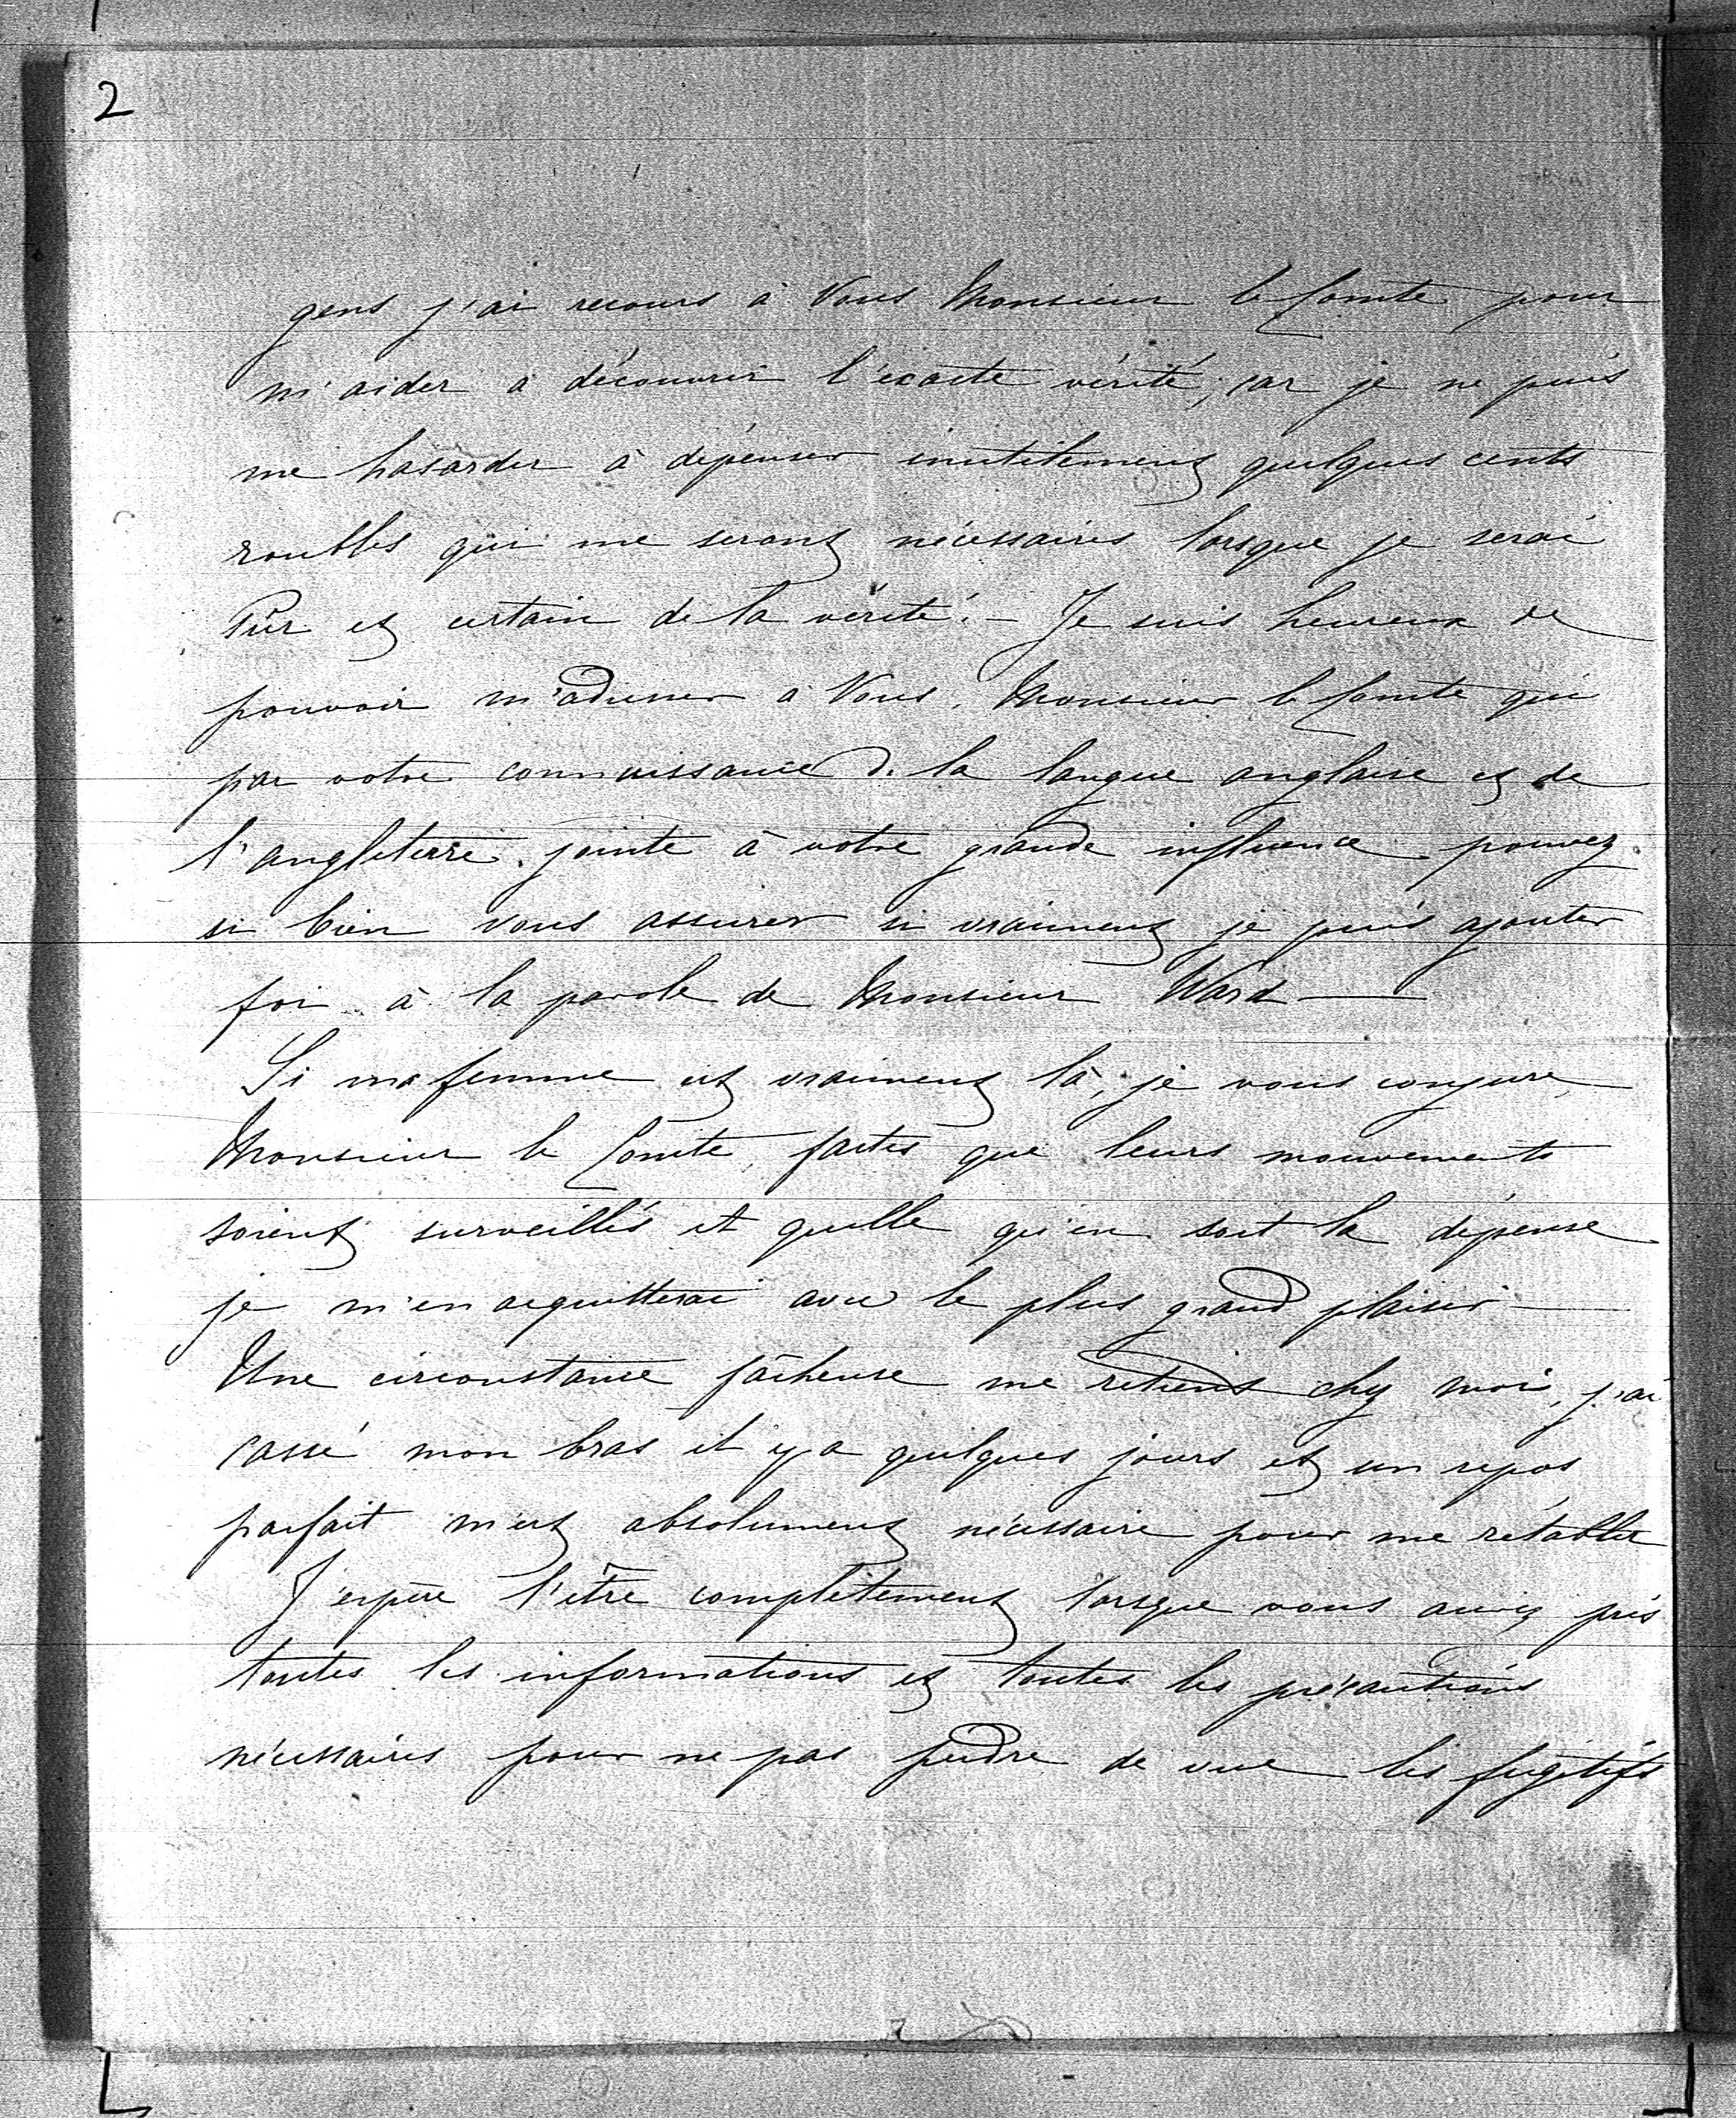 2
gens j'ai recours à Vous Monsieur le Comte pour
m'aider à découvrir l'exacte vérité, car je ne puis
me hasarder à dépenser inutilement quelques cents
roubles qui me seront nécessaires lorsque je serai
sûr et certain de la vérité. – Je suis heureux de
pouvoir m'adresser à Vous, Monsieur le Comte qui
par votre connaissance de la langue anglaise et de
l'angleterre, jointe à votre grande influence pouvez
si bien vous assurer si vraiment je puis ajouter
foi à la parole de Monsieur Ward —
Si ma femme est vraiment là, je vous conjure,
Monsieur le Comte, faites que leurs mouvements
soient surveillés et quelle qu'en soit la dépense
je m'en acquitterai avec le plus grand plaisir —
Une circonstance fâcheuse me retient chez moi, j'ai
cassé mon bras il y a quelques jours et un repos
parfait m'est absolument nécessaire pour me rétablir
J'espère l'être complètement lorsque vous aurez pris
toutes les informations et toutes les précautions
nécessaires pour ne pas perdre de vue les fugitifs